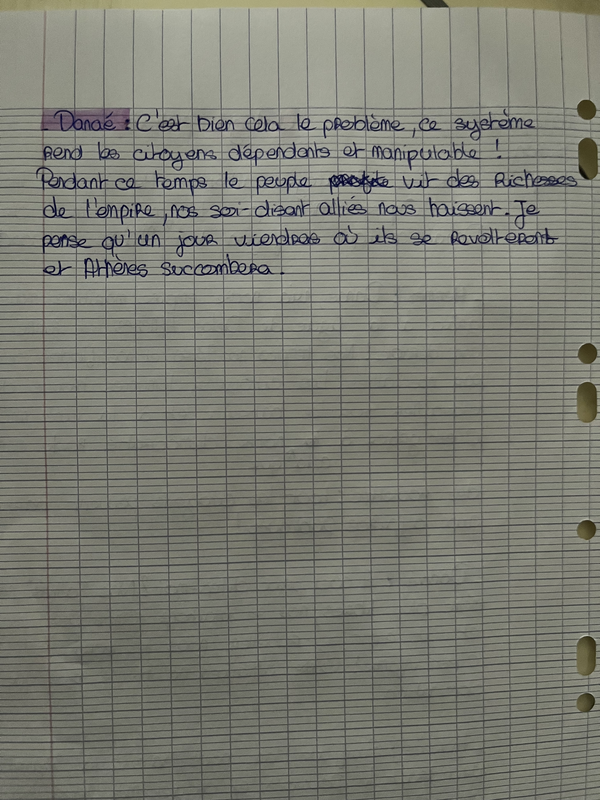 Danaé : C'est bien cela le problème, ce système
rend les citoyens dépendants et manipulable !
Pendant ce temps le peuple vit des Richesses
de l'empire, nos soi-disant alliés nous haissent. Je
pense qu'un jour viendras où ils se Révolteront
et Athènes succombera.